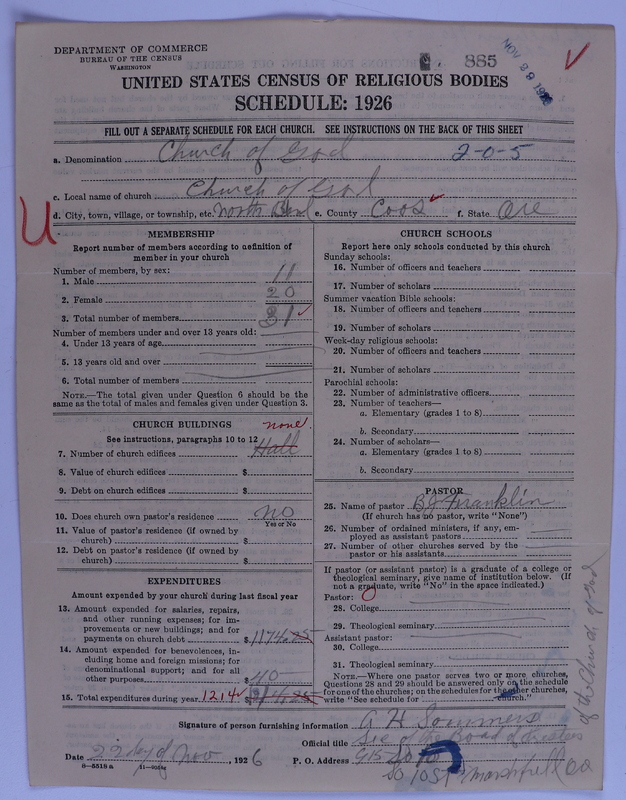 DEPARTMENT OF COMMERCE
BUREAU OF THE CENSUS
WASHINGTON
885
NOV 29 1926
UNITED STATES CENSUS OF RELIGIOUS BODIES
SCHEDULE: 1926
FILL OUT A SEPARATE SCHEDULE FOR EACH CHURCH. SEE INSTRUCTIONS ON THE BACK OF THIS SHEET
a. Denomination Church of God 2-0-5
c. Local name of church Church of God
d. City, town, village, or township, etc. North Bend e. County Coos f. State Ore
MEMBERSHIP
Report number of members according to definition of
member in your church
Number of members, by sex:
1. Male 11
2. Female 20
3. Total number of members 31
Number of members under and over 13 years old:
4. Under 13 years of age
5. 13 years old and over
6. Total number of members
NOTE.—The total given under Question 6 should be the
same as the total of males and females given under Question 3.
CHURCH BUILDINGS none
See instructions, paragraphs 10 to 12
7. Number of church edifices Hall
8. Value of church edifices $
9. Debt on church edifices $
10. Does church own pastor's residence No
Yes or No
11. Value of pastor's residence (if owned by
church) $
12. Debt on pastor's residence (if owned by
church) $
EXPENDITURES
Amount expended by your church during last fiscal year
13. Amount expended for salaries, repairs,
and other running expenses; for im-
provements or new buildings; and for
payments on church debt $ 1174.25
14. Amount expended for benevolences, in-
cluding home and foreign missions; for
denominational support; and for all
other purposes $ 40
15. Total expenditures during year 1214 $
CHURCH SCHOOLS
Report here only schools conducted by this church
Sunday schools:
16. Number of officers and teachers
17. Number of scholars
Summer vacation Bible schools:
18. Number of officers and teachers
19. Number of scholars
Week-day religious schools:
20. Number of officers and teachers
21. Number of scholars
Parochial schools:
22. Number of administrative officers
23. Number of teachers—
a. Elementary (grades 1 to 8)
b. Secondary
24. Number of scholars—
a. Elementary (grades 1 to 8)
b. Secondary
PASTOR
25. Name of pastor B J Franklin
(If church has no pastor, write "None")
26. Number of ordained ministers, if any, em-
ployed as assistant pastors
27. Number of other churches served by the
pastor or his assistants
If pastor (or assistant pastor) is a graduate of a college or
theological seminary, give name of institution below. (If
not a graduate, write "No" in the space indicated.)
Pastor:
28. College
29. Theological seminary
Assistant pastor:
30. College
31. Theological seminary
NOTE.—Where one pastor serves two or more churches,
Questions 28 and 29 should be answered only on the schedule
for one of the churches; on the schedules for the other churches,
write "See schedule for church."
Signature of person furnishing information A H Sommers
Official title Sec of the Board of trustees
of the Church of God
Date 22 day of Nov, 1926 P. O. Address 915
So 10 St Marshfield
8—5518 a